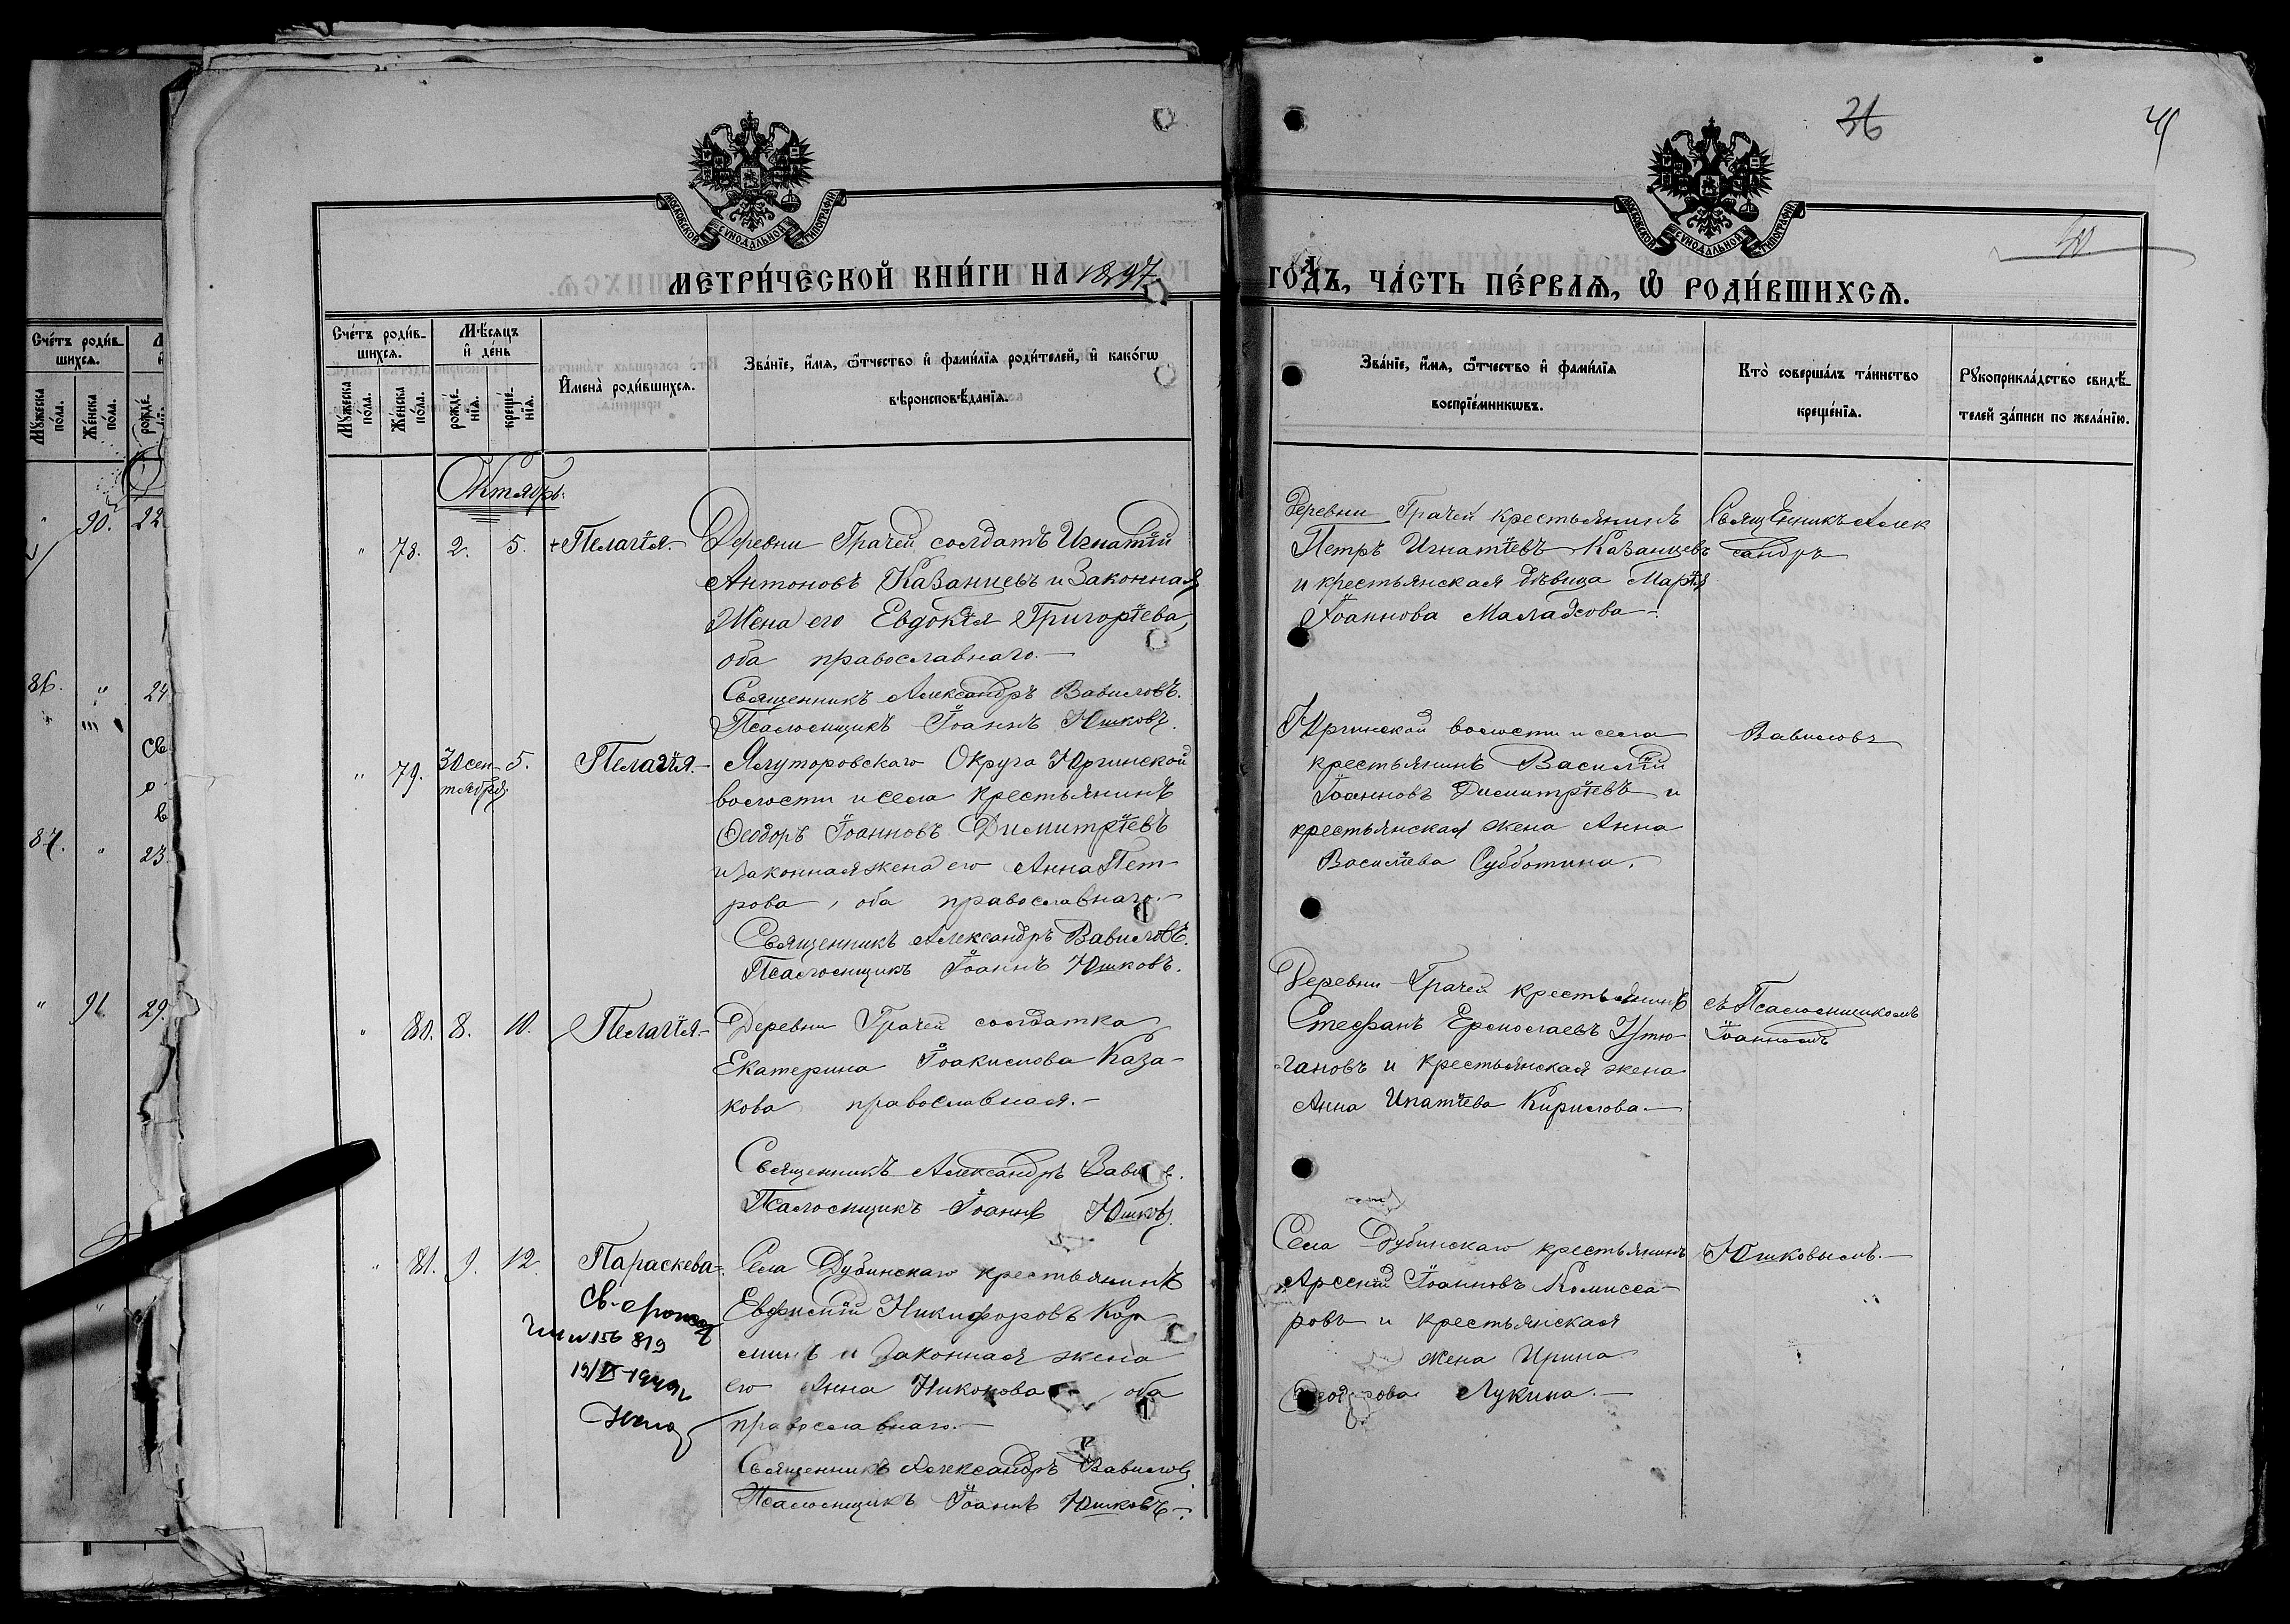 36
41
40.
МОСКОВСКОЙ СУНОДАЛЬНОЙ ТИПОГРАФИИ
МОСКОВСКОЙ СУНОДАЛЬНОЙ ТИПОГРАФИИ
МЕТРИ́ЧЕСКОЙ КНИ́ГИ НА 1897
ГОДЪ, ЧА́СТЬ ПЕ́РВАѦ, Ѡ РОДИ́ВШИХСѦ.
Сче́тъ роди́в-
шихсѧ.
Мꙋ́жеска
по́ла.
Же́нска
по́ла.
Мѣ́сѧцъ
и҆ де́нь
рожде́-
нїѧ.
креще́-
нїѧ.
И҆мена̀ роди́вшихсѧ.
Зва́нїе, и҆́мѧ, ѻ҆́тчество и҆ фами́лїѧ роди́телей, и҆ како́гѡ
вѣроисповѣ́данїѧ.
Зва́нїе, и҆́мѧ, ѻ҆́тчество и҆ фами́лїѧ
воспрїе́мникѡвъ.
Кто̀ соверша́лъ та́инство
креще́нїѧ.
Рꙋкоприкла́дство свидѣ́-
телей за́писи по жела́нїю.
Сче́тъ роди́в-
шихсѧ.
Мꙋ́жеска
по́ла.
Же́нска
по́ла.
рожде́-
" 90. 22
86. " 24
87. " 23.
" 91. 29.
Октябрь.
" 78. 2. 5. +Пелагія.-
Деревни Грачей солдатъ Игнатій
Антоновъ Казанцевъ и законная
жена его Евдокія Григоріева,
оба православнаго.-
Священникъ Александръ Вавиловъ.
Псаломщикъ Іоаннъ Юшковъ.
Деревни Грачей крестьянинъ
Петръ Игнатіевъ Казанцевъ
и крестьянская дѣвица Марія
Іоаннова
Священникъ Алек
сандръ
" 79. 30 сен- 5. Пелагія.-
тября
Ялуторовскаго Округа Юргинской
волости и села крестьянинъ
Ѳеодоръ Іоанновъ Димитріевъ
и законная жена его Анна Пет-
рова, оба православнаго.-
Священникъ Александръ Вавиловъ.
Псаломщикъ Іоаннъ Юшковъ.
Юргинской волости и села
крестьянинъ Василій
Іоанновъ Димитріевъ и
крестьянская жена Анна
Василіева Субботина.
Вавиловъ
" 80. 8. 10. Пелагія.-
Деревни Грачей солдатка
Екатерина Іоакимова Каза-
кова православная.-
Священникъ Александръ
Псаломщикъ Іоаннъ Юшковъ.
Деревни Грачей крестьянинъ
Стефанъ Ермолаевъ Устю-
гановъ и крестьянская жена
Анна Ипатіева Кирилова.-
съ Псаломщикомъ
Іоанномъ
" 81. 9. 12. Параскева-
Св-
156 819
Села Дубинскаго крестьянинъ
Евфимій Никифоровъ Кор-
минъ и законная жена
его Анна Никонова оба
православнаго.-
Священникъ Александръ Вавиловъ
Псаломщикъ Іоаннъ Юшковъ.-
Села Дубинскаго крестьянинъ
Арсеній Іоанновъ Комисса-
ровъ и крестьянская
жена Ирина
Ѳеодорова Лукина.-
Юшковымъ.-